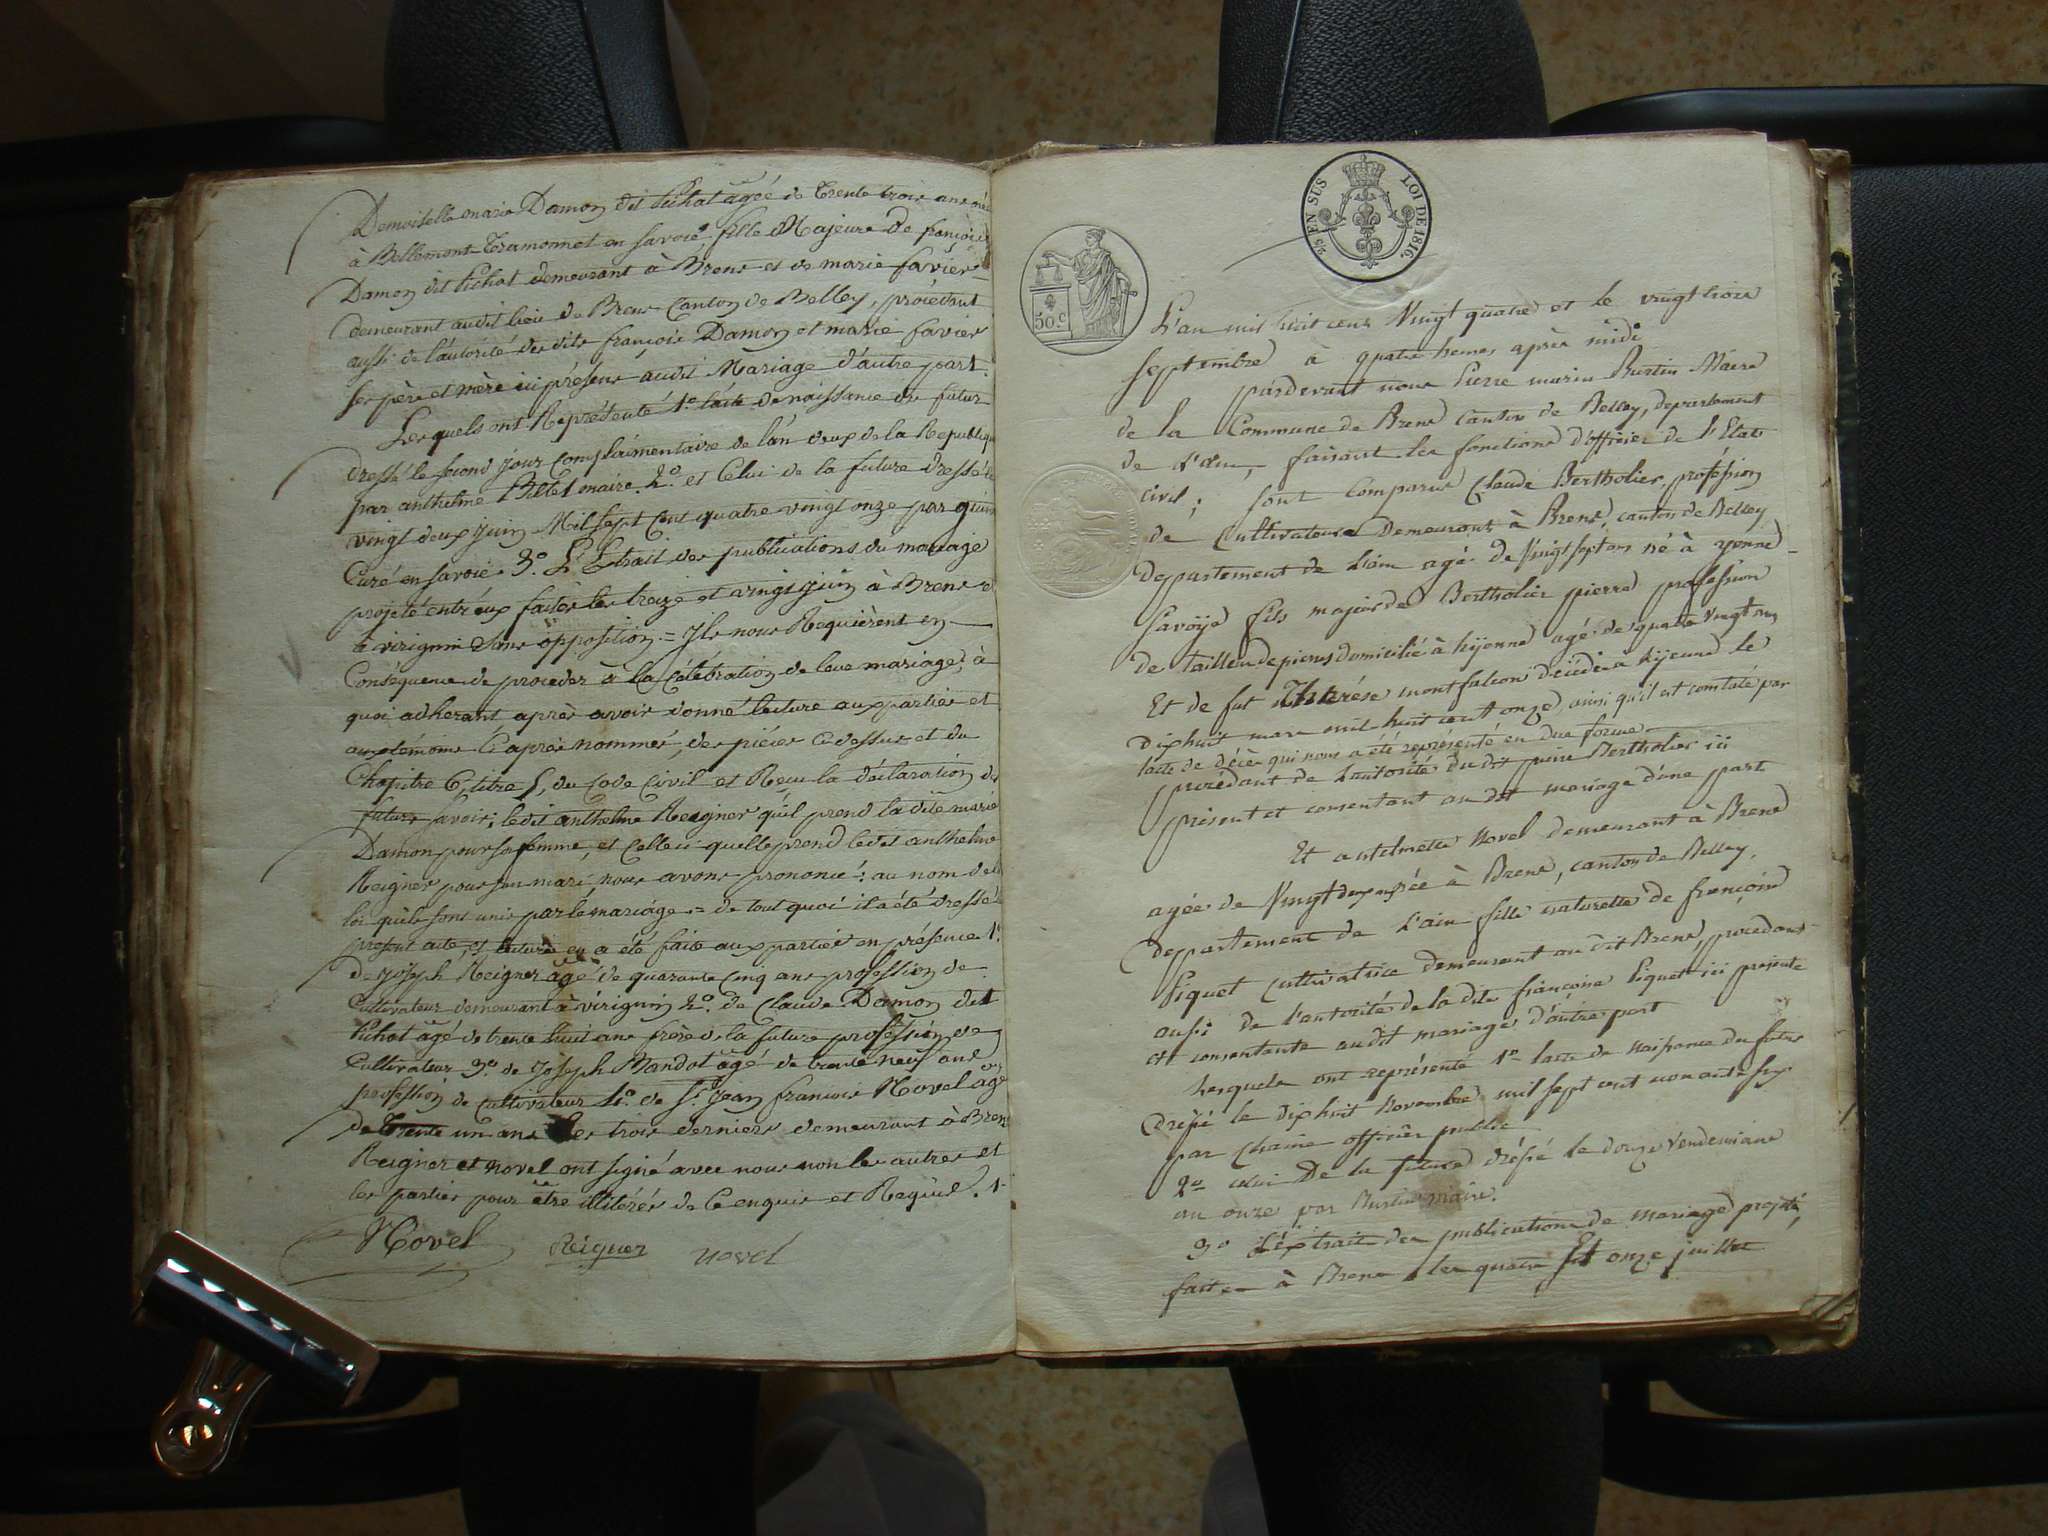 Demoiselle marie Damon dit Pichat âgée de Trente trois ans née
à Bellemont Tramonnet en Savoie, fille Majeure De françois
Damon dit Pichat demeurant à Brens et de marie favier
demeurant audit lieu de Brens Canton de Belley, procédant
aussi de l'autorité des dits françois Damon et marie favier
ses père et mère ici présens audit Mariage d'autre part.
Lesquels ont Représenté 1.º l'acte de naissance du futur
dressé le second jour complaimentaire de l'an deux de la Republique
par anthelme Billet maire. 2.º et Celui de la future dressé le
vingt deux juin Mil sept Cent quatre vingt onze par
Curé en Savoie 3.º L'Extrait des publications du mariage
projeté entr'eux faites les treize et vingt juin à Brens et
à virignin sans opposition. = Ils nous Requièrent en
Conséquence de proceder à la Célébration de leur mariage, à
quoi adherant après avoir donné lecture aux parties et
aux témoins Ci après nommés, des pièces Ci dessus et du
Chapitre 6, titre 5, du Code Civil et Reçu la déclaration des
futurs savoir; ledit anthelme Reigner qu'il prend la dite marie
Damon pour sa femme, et Celle ci quelle prend ledit anthelme
Reigner pour son mari, nous avons prononcé: au nom de la
loi qu'ils sont unis par le mariage = de tout quoi il a été dressé le
présent acte, et lecture en a été faite aux parties en présence 1.º
de joseph Reigner âgé de quarante Cinq ans profession de
Cultivateur demeurant à virignin 2.º de Claude Damon dit
Pichat âgé de trente huit ans frère de la future profession de
Cultivateur 3.º de joseph Bandot âgé de trente neuf ans
profession de Cultivateur 4.º de S.r jean françois Novel âgé
de Trente un ans les trois derniers demeurant à Brens
Reigner et novel ont signé avec nous non les autres et
les parties pour être illitérés de Ce enquis et Requis.
Novel Reigner novel
50 C
2/5 EN SUS LOI DE 1816.
L'an mil huit cent Vingt quatre et le vingt trois
Septembre à quatre heures après midi
pardevant nous Pierre marin Burtin Maire
de la Commune de Brens canton de Belley, departement
de l'ain, faisant les fonctions d'officier de l'Etat
civil; sont Comparus Claude Bertholier, profession
de Cultivateur Demeurant à Brens, canton de Belley
departement de l'ain agé de Vingt sept ans né à yenne
Savoÿe fils majeur de Bertholier pierre profession
de tailleur de pierres domicilié à hyenne agé de quatre vingt un
Et de fut Thérése montfalcon décédée a hijenne le
dix huit mars mil huit cent onze, ainsi qu'il est constaté par
lacte de décès qui nous a été représenté en due forme
procédant de lautorité du dit pierre Bertholier ici
présent et consentant au dit mariage d'une part
Et antelmette Novel demeurant à Brens
agée de Vingt deux née à Brens, canton de Belley,
departement de l'ain fille naturelle de françoise
Piquet Cultivatrice demeurant au dit Brens, procedant
aussi de l'autorité de la dite françoise Piquet ici présente
et consentante au dit mariage d'autre part
lesquels ont représenté 1º lacte de Naissance du futur
dressé le dix huit Novembre mil sept cent nonante six
par Chanie officier public
2º celui De la future dréssé le douze Vendemiaire
an onze par Burtin maire.
3º L'éxtrait des publications de mariage projeté,
faites à Brens les quatre Et onze juillet